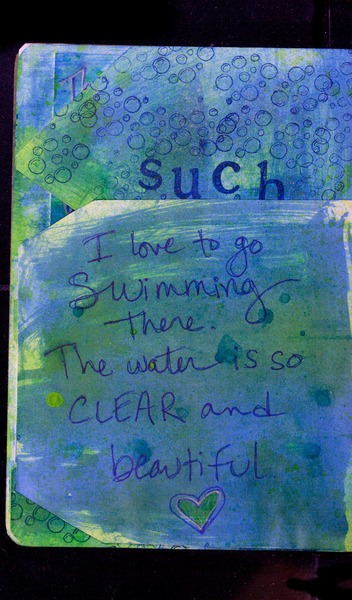 such
I love to go
Swimming
There.
The water is so
CLEAR and
beautiful